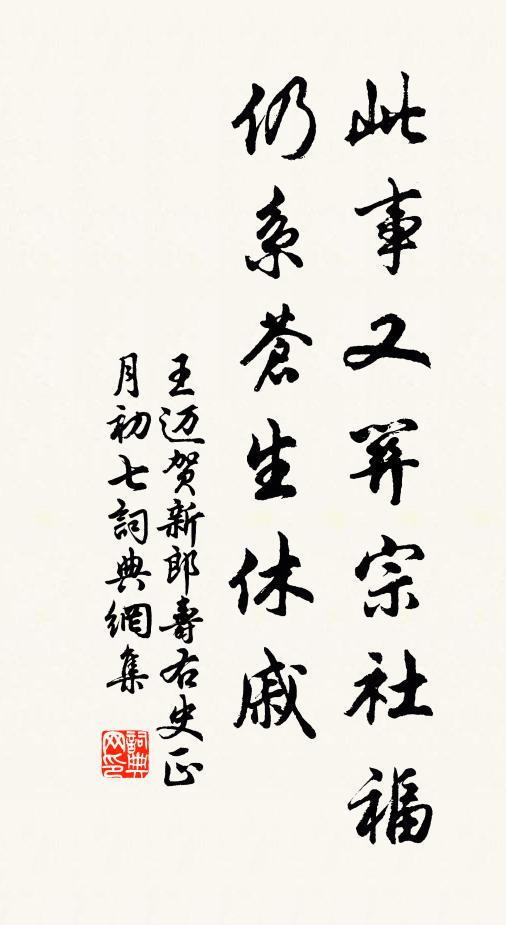 此事又关宗社福
仍系苍生休戚
王迈贺新郎寿右史正
月初七詞典網集
詞典
网印